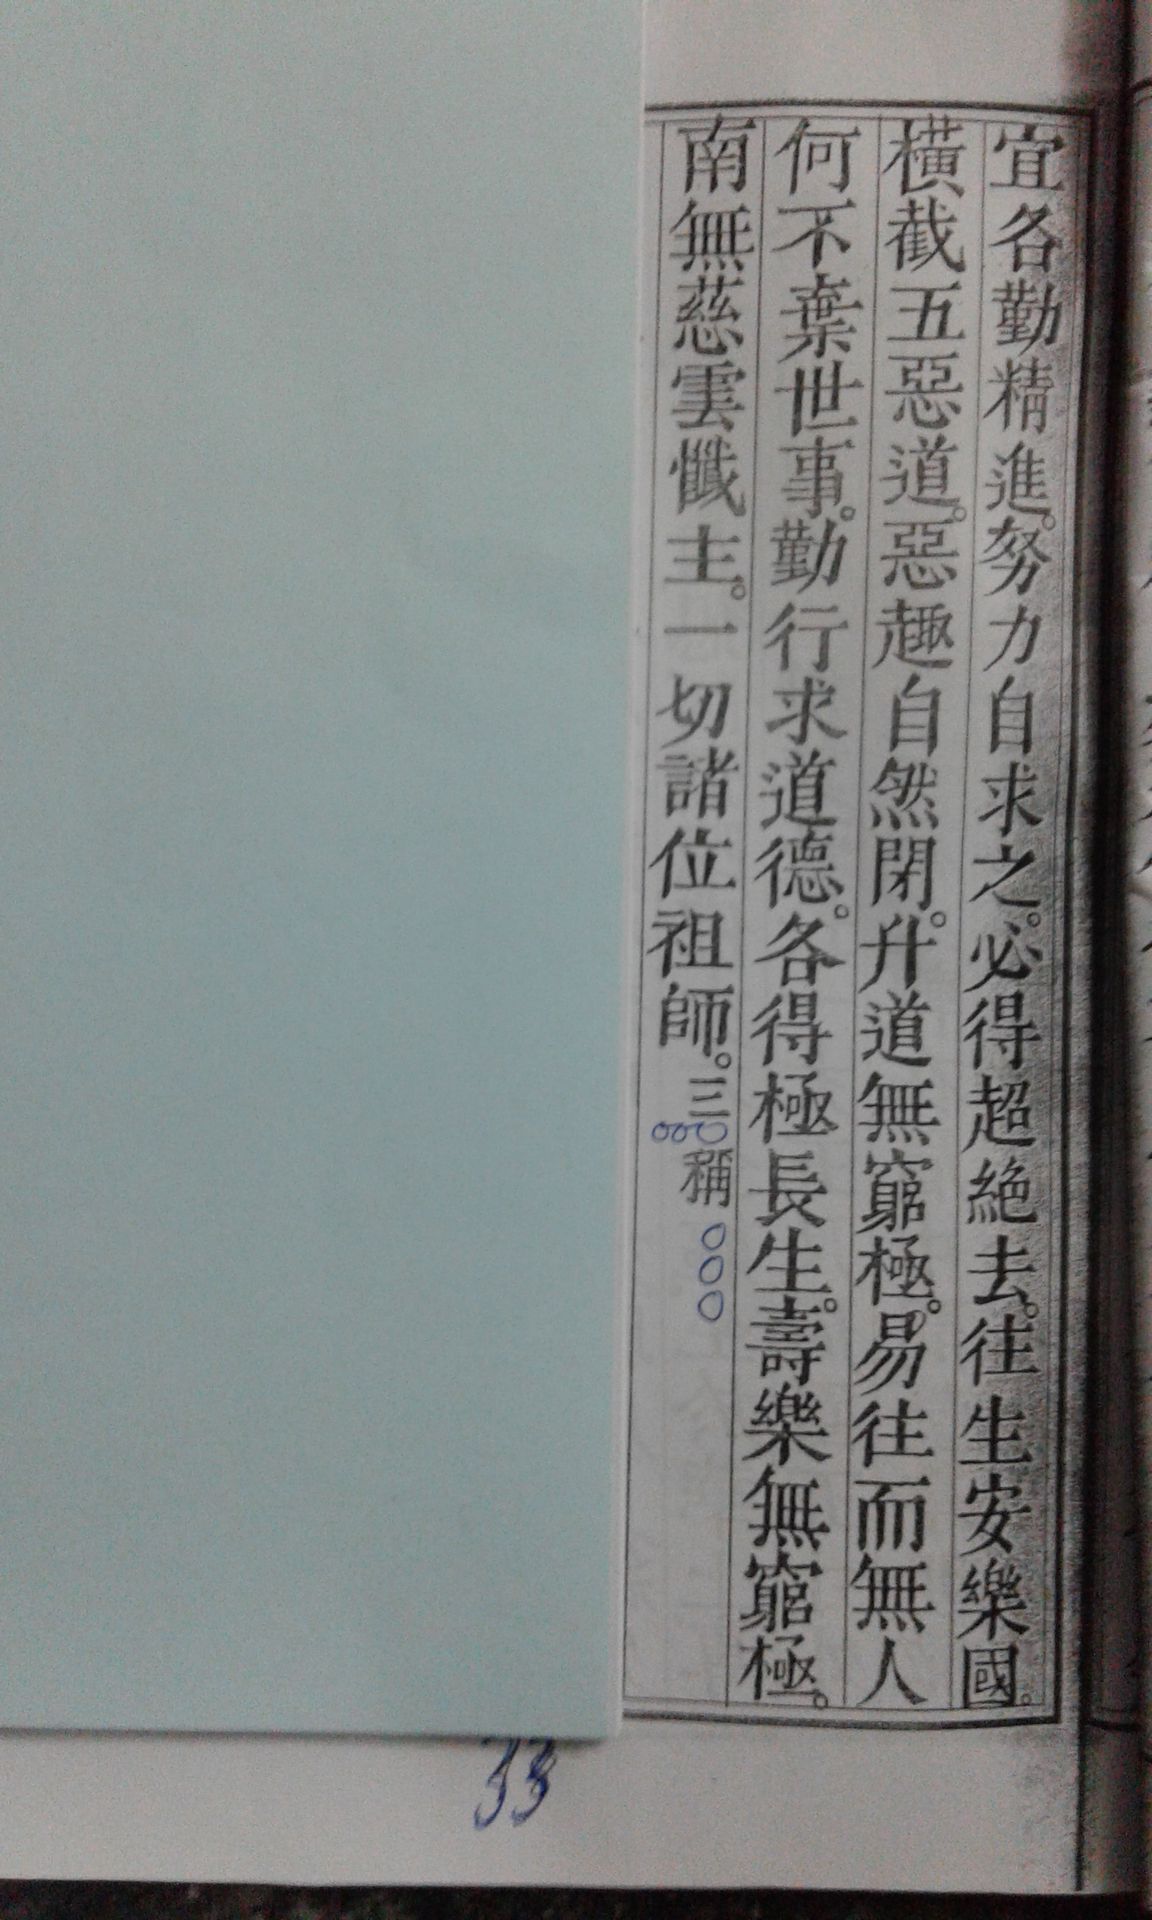 宜各勤精進。努力自求之。必得超絕去。往生安樂國。
橫截五惡道。惡趣自然閉。升道無窮極。易往而無人
何不棄世事。勤行求道德。各得極長生。壽樂無窮極。
南無慈雲懺主。一切諸位祖師。三稱
33